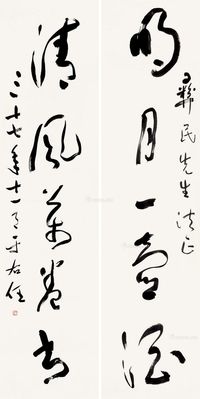 明月一壺酒
彝民先生法正
清風萬卷書
三十七年十一月于右任